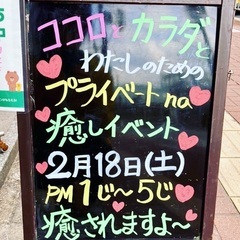 ココロとカラダと
わたしのための
プライベートna
癒しイベント
2月18日(土)
PM1じ〜5じ
癒されますよ〜